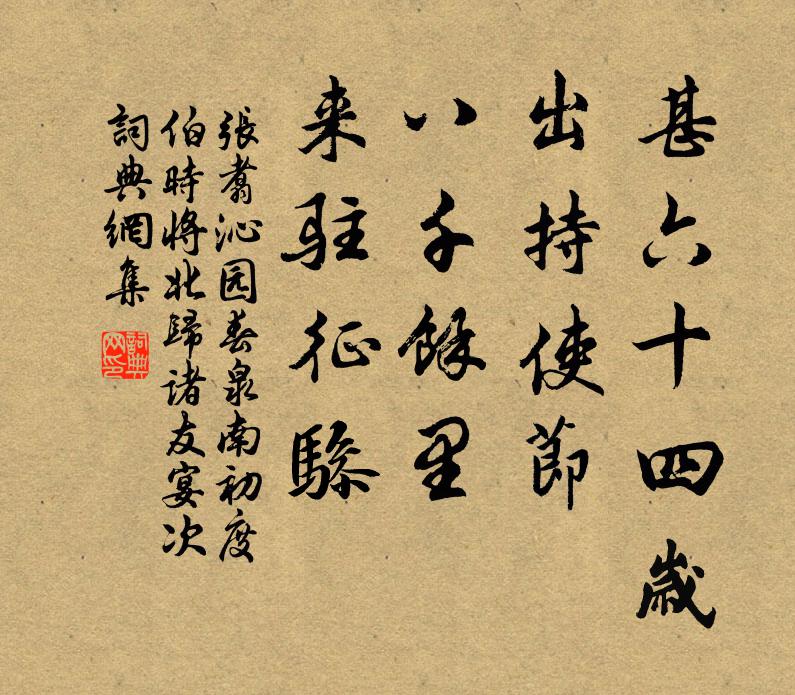 甚六十四歲
出持使節
八千餘里
来駐征驂
張翥沁园春泉南初度
伯時將北歸諸友宴次
詞典網集
詞典网印